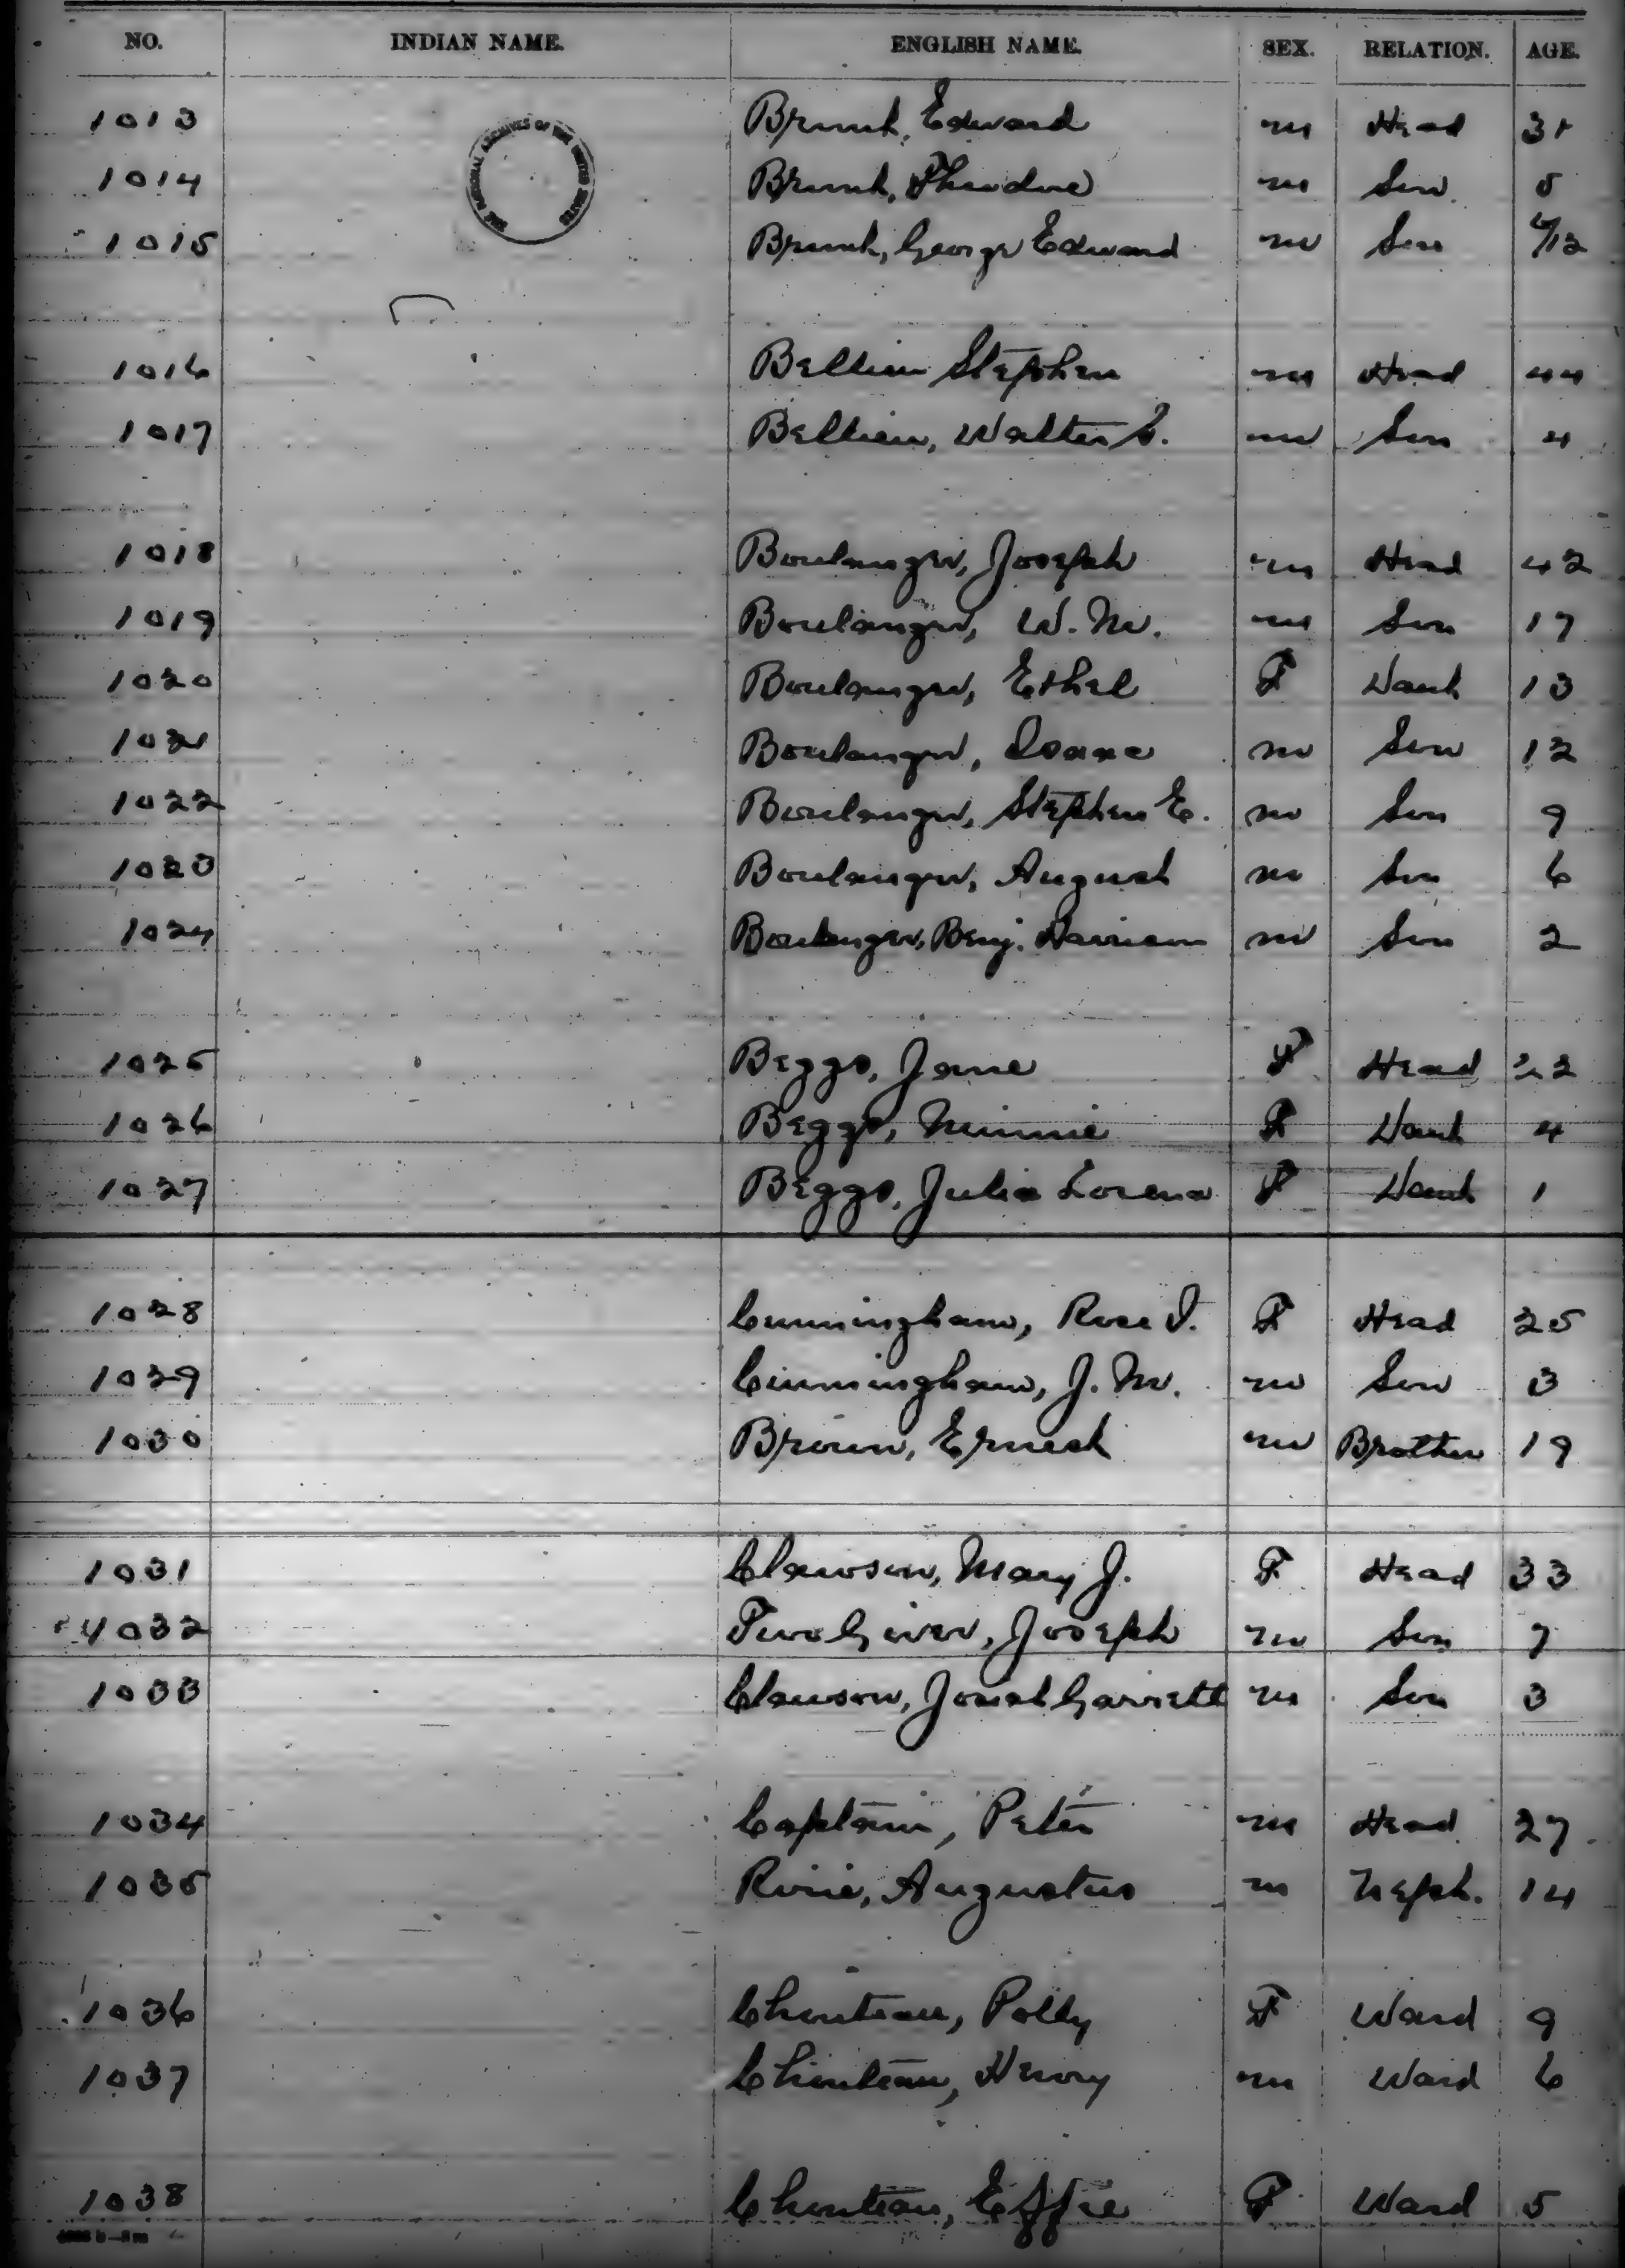 NO. INDIAN NAME. ENGLISH NAME. SEX. RELATION. AGE.
THE NATIONAL ARCHIVES OF THE UNITED STATES
1013 Brunk, Edward M Head 31
1014 Brunk, Theodore M Son 5
1015 Brunk, George Edward M Son /12
1016 Bellieu Stephen M Head 44
1017 Bellieu, Walter S. M Son 4
1018 Boulanger, Joseph M Head 42
1019 Boulanger, W. M. M Son 17
1020 Boulanger, Ethel F Dauh 13
1021 Boulanger, Isaac M Son 12
1022 Boulanger, Stephen E. M Son 9
1023 Boulanger, August M Son 6
1024 Boulanger, Benj. Harrison M Son 2
1025 Beggs, Jane F Head 22
1026 Beggs, Minnie F Dauh 4
1027 Beggs, Julia Lorena F Dauh 1
1028 Cunningham, Rose I. F Head 25
1029 Cunningham, J. M. M Son 3
1030 Brown, Ernest M Brother 19
1031 Clawson, Mary J. F Head 33
1032 Two Giver, Joseph M Son 7
1033 Clawson, Josiah Garrett M Son 3
1034 Captain, Peter M Head 27
1035 Augustus M Neph. 14
1036 Chouteau, Polly F Ward 9
1037 Chouteau, Henry M Ward 6
1038 Chouteau, Effie F Ward 5